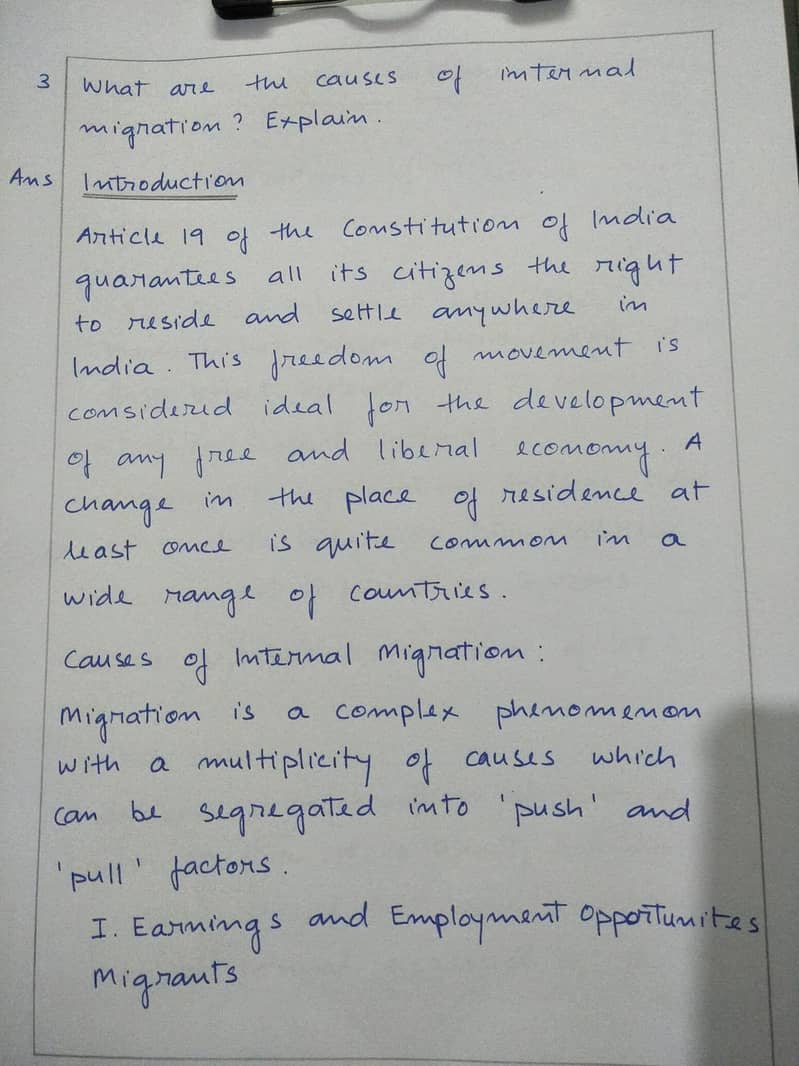 3 What are the causes of internal
migration? Explain.
Ans Introduction
Article 19 of the Constitution of India
guarantees all its citizens the right
to reside and settle anywhere in
India. This freedom of movement is
considered ideal for the development
of any free and liberal economy. A
change in the place of residence at
least once is quite common in a
wide range of countries.
Causes of Internal Migration:
Migration is a complex phenomenon
with a multiplicity of causes which
can be segregated into 'push' and
'pull' factors.
I. Earnings and Employment Opportunites
Migrants